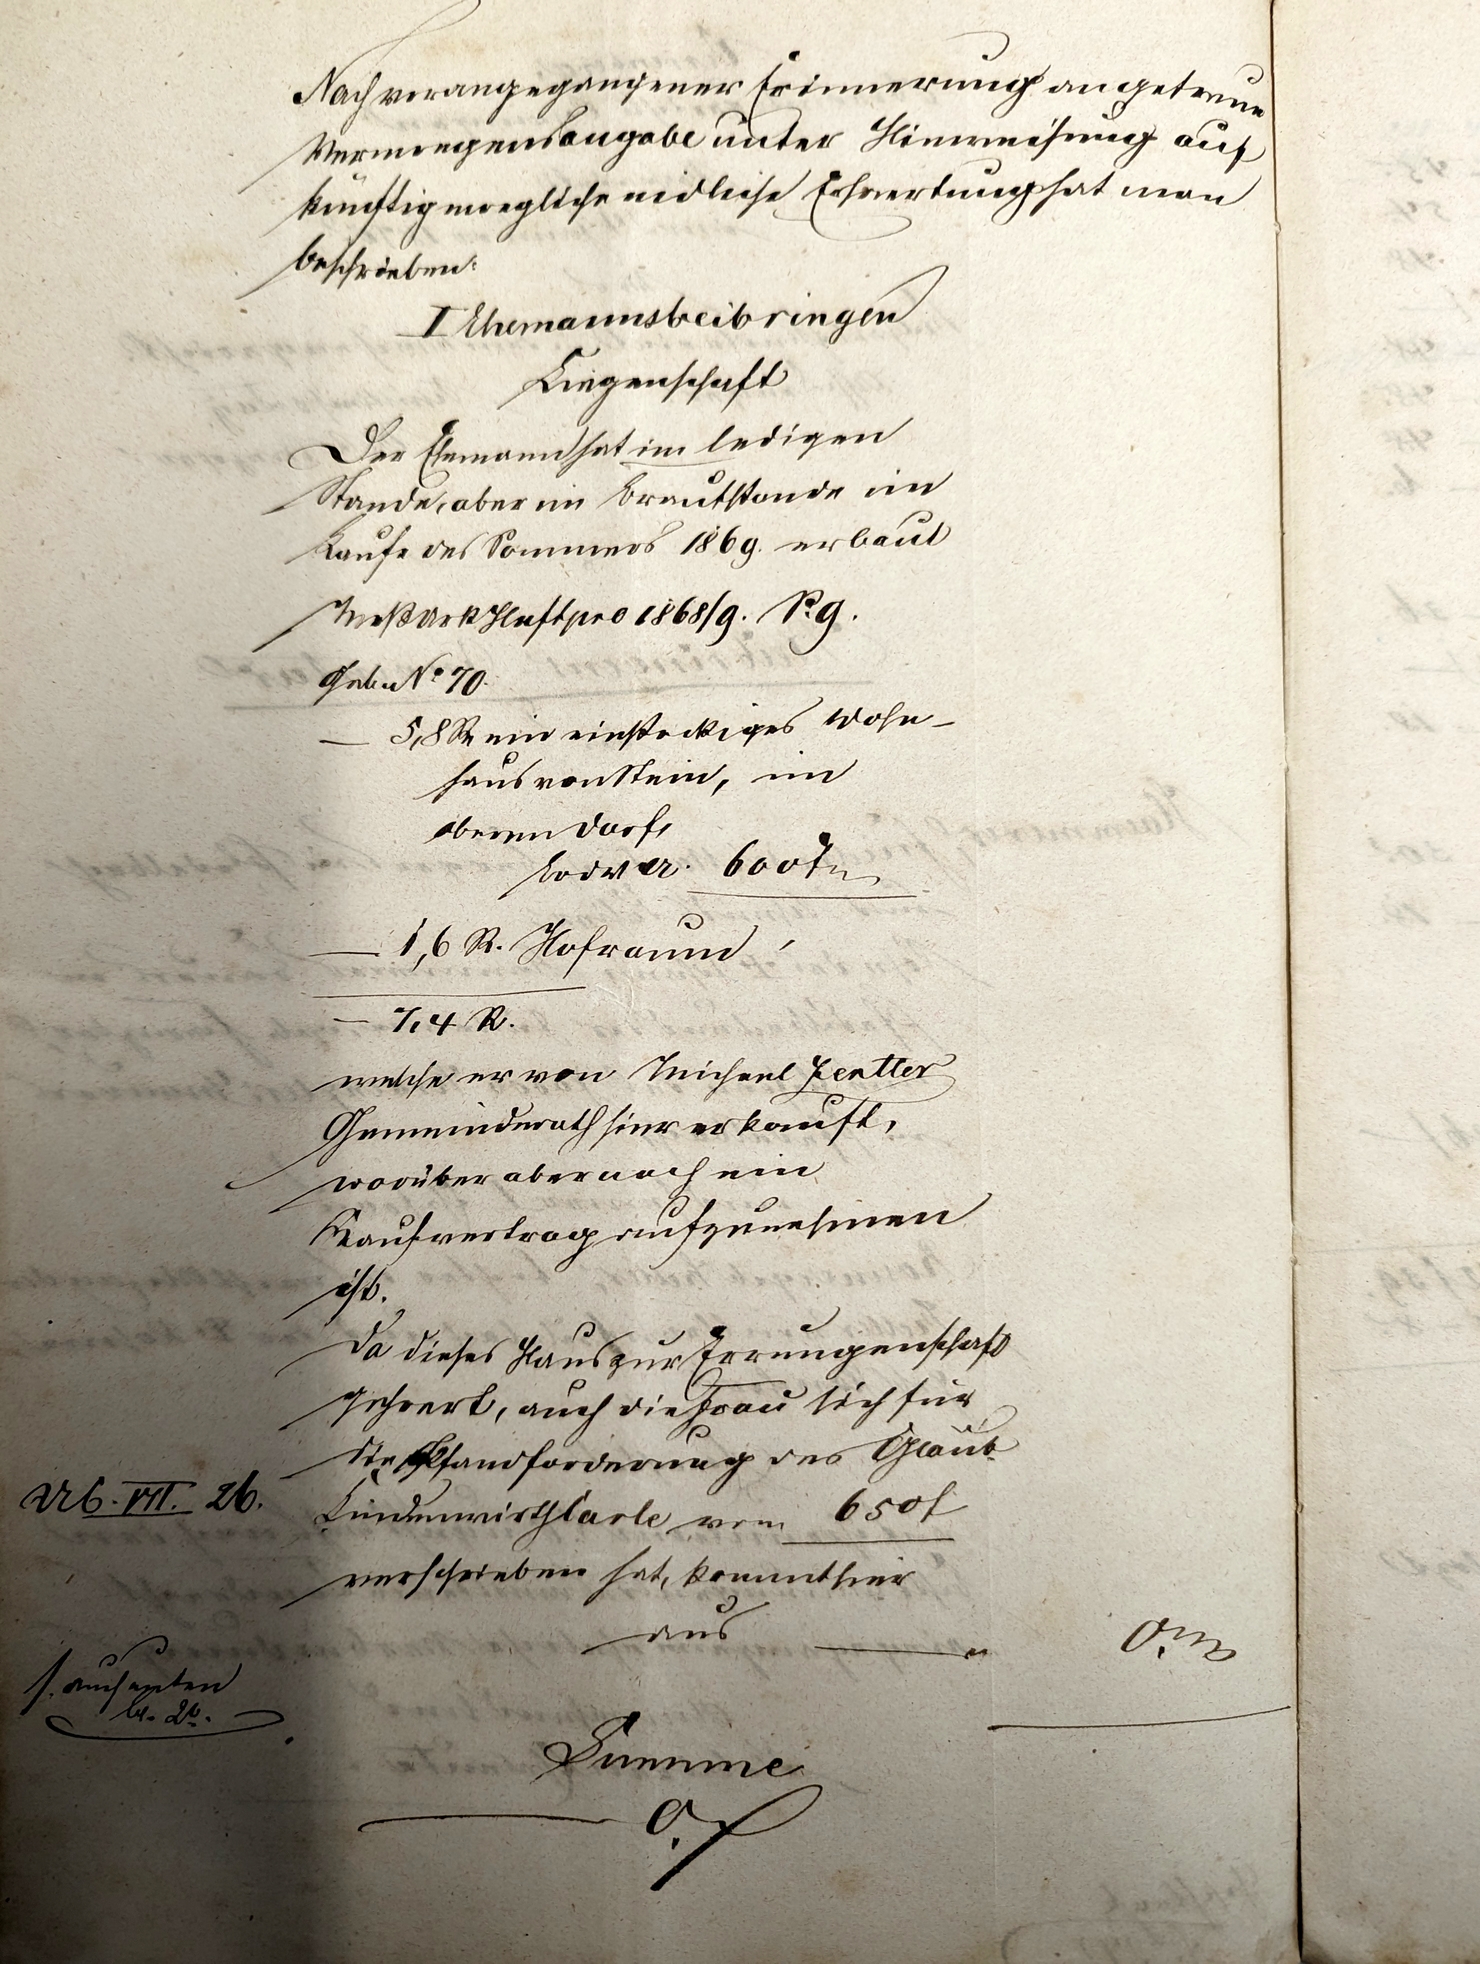 Nach vorangegangener Erinnerung an getreue
Vermoegensangabe unter Hinweisung auf
künftig moegliche eidliche Erhaertung hat man
beschrieben:
I Ehemannsbeibringen
Liegenschaft
Der Ehemann hat im ledigen
Stande, aber im Brautstande im
Laufe des Sommers 1869. erbaut
Meßurk Heft pro 1868/9. No. 9.
Geb. No 70.
— 5,8 R. ein einstockiges Wohn-
haus von Stein, im
oberen Dorf,
600 f
— 1,6 R. Hofraum,
— 7,4 R.
welche er von Michael Zentler
Gemeinderath hier erkauft,
worüber aber noch ein
Kaufvertrag aufzunehmen
ist.
Da dieses Haus zur Errungenschaft
gehoert, auch die Frau sich für
die Pfandforderung des Gläub.
Lindenwirth Carle von 650 f
Ub. VII. 26.
verschrieben hat, kommt hier
aus — " 0.
s. auch unten
bl. 2b.
Summe
— 0. f